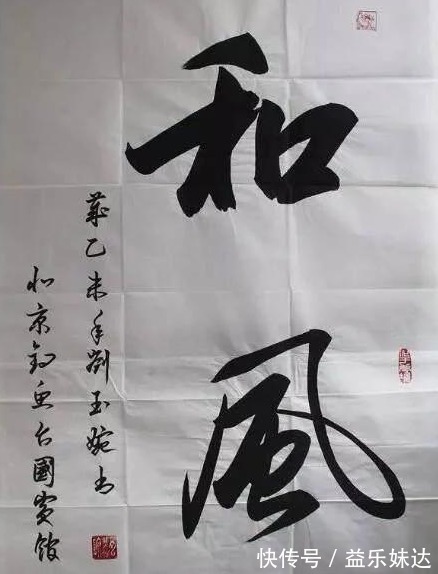 和風
歲乙未年劉玉婉书
北京钓鱼台國賓館
快传号 / 益乐妹达